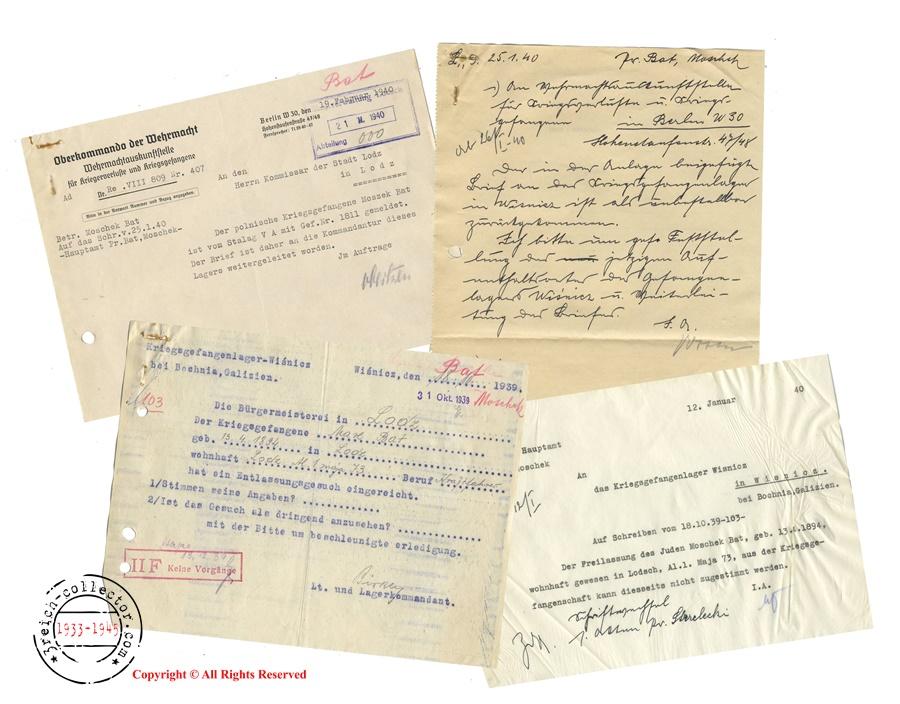 Bat
Oberkommando der Wehrmacht
Wehrmachtauskunftstelle
für Kriegerverluste und Kriegsgefangene
Berlin W 30, den
Hohenstaufenstraße 47/48
19. Februar 1940
21. II. 1940
Abteilung 000
Ad Dr.Re .VIII 809 Nr. 407
Bitte in der Antwort Nummer und Bezug anzugeben.
An den
Herrn Kommissar der Stadt Lodz
in L o d z
Betr. Moschek Bat
Auf das Schr.v.25.1.40
-Hauptamt Pr.Bat,Moschek-
Der polnische Kriegsgefangene Moszek Bat
ist vom Stalag V A mit Gef.Nr. 1811 gemeldet.
Der Brief ist daher an die Kommandantur dieses
Lagers weitergeleitet worden.
Jm Auftrage
25.1.40 Pr. Bat, Moschek
1) An Wehrmachtauskunftstelle
für Kriegerverluste u. Kriegs-
gefangenen in Berlin W 30
Hohenstaufenstr. 47/48
Der in der Anlage beigefügte
Brief an das Kriegsgefangenlager
in Wiśnicz ist als unbestellbar
zurückgekommen.
Ich bitte um gefl. Feststel-
lung des jetzigen Auf-
enthaltsortes des Gefangen-
lagers Wiśnicz u. Weiterlei-
tung des Briefes.
Kriegsgefangenlager-Wiśnicz
bei Bochnia,Galizien.
Wiśnicz,den 1939.
Bat
Moschek
31 Okt. 1939
103
Die Bürgermeisterei in Lodz
Der Kriegsgefangene Bat
geb. 13.4.1894 in Lodz
wohnhaft Lodz 73 Beruf
hat ein Entlassungsgesuch eingereicht.
1/Stimmen seine Angaben?
2/Ist das Gesuch als dringend anzusehen?
mit der Bitte um beschleunigte erledigung.
II F Keine Vorgänge
Lt. und Lagerkommandant.
12. Januar 40
Hauptamt
Moschek
An
das Kriegsgefangenlager Wisnicz
in W i s n i c z
bei Bochnia,Galizien.
12/I
Auf Schreiben von 18.10.39-103-
Der Freilassung des Juden Moschek Bat, geb. 13.4.1894,
wohnhaft gewesen in Lodsch, Al.1. Maja 73, aus der Kriegsge-
fangenschaft kann diesseits nicht zugestimmt werden.
I.A.
Schriftwechsel
Pr. Strelecki
3reich-collector.com
1933-1945
Copyright © All Rights Reserved